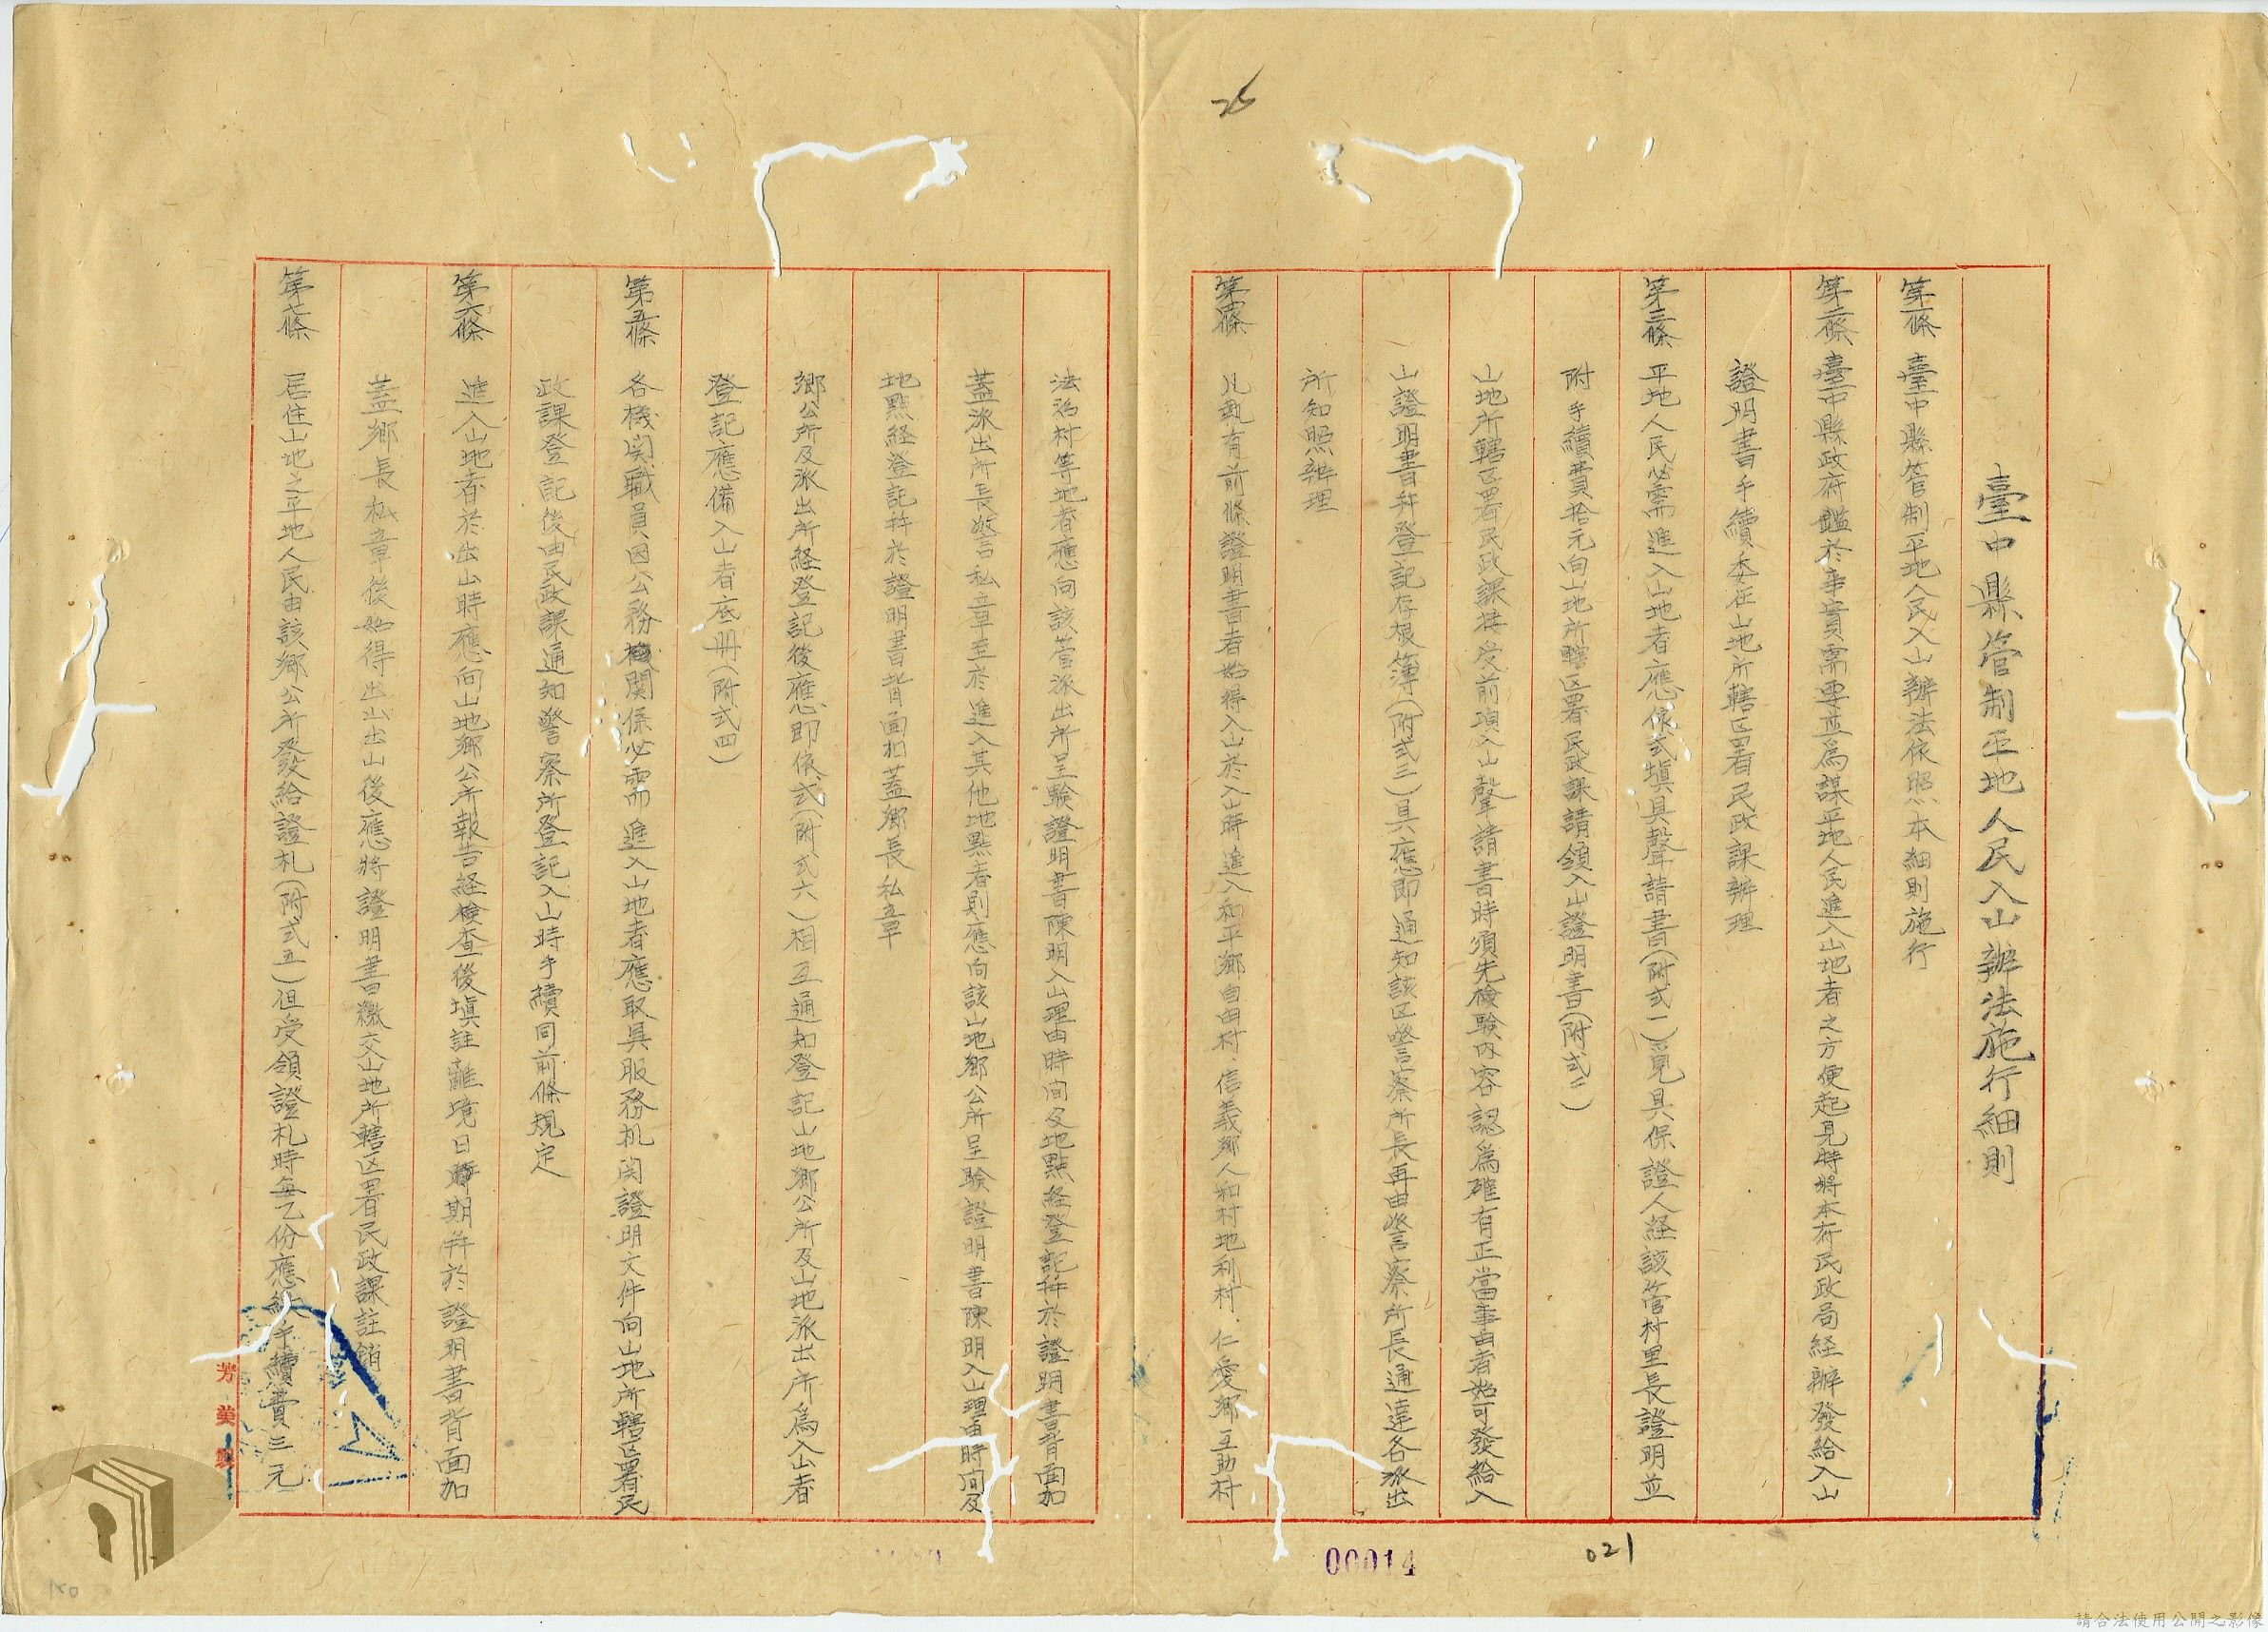 25
臺中縣管制平地人民入山辦法施行細則
第一條 臺中縣管制平地人民入山辦法依照本細則施行
第二條 臺中縣政府鑑於事實需要並為謀平地人民進入山地者之方便起見特將本府民政局経辦發給入山
證明書手續委任山地所轄区署民政課辦理
第三條 平地人民必需而進入山地者應依式填具聲請書(附式一)覓具保證人経該管村里長證明並
附手續費拾元向山地所轄区署民政課請領入山證明書(附式二)
山地所轄区署民政課接受前項入山聲請書時須先檢験內容認為確有正當事由者始可發給入
山證明書并登記存根簿(附式三)具應即通知該区警察所長再由警察所長通達各派出
所知照辦理
第四條 凡執有前條證明書者始得入山於入山時進入和平鄉自由村、信義鄉人和村地利村、仁愛鄉互助村
法治村等地者應向該管派出所呈験證明書陳明入山理由時间及地點経登記并於證明書背面加
蓋派出所長警私章至於進入其他地點者則應向該山地鄉公所呈験證明書陳明入山理由時间及
地點経登記并於證明書背面加蓋鄉長私章
鄉公所及派出所経登記後應即依式(附式六)相互通知登記山地鄉公所及山地派出所為入山者
登記應備入山者底冊(附式四)
第五條 各機関職員因公務機関係必需而進入山地者應取具服務机関證明文件向山地所轄区署民
政課登記後由民政課通知警察所登記入山時手續同前條規定
第六條 進入山地者於出山時應向山地鄉公所報告経檢查後填註離境日期并於證明書背面加
蓋鄉長私章後始得出山出山後應將證明書繳交山地所轄区署民政課註銷
第七條 居住山地之平地人民由該鄉公所發給證札(附式五)但受領證札時每乙份應繳手續費三元
芳美製
00014
021
請合法使用公開之影像